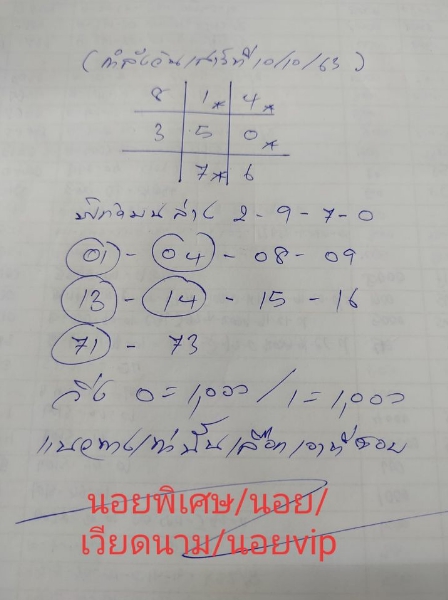 (กำลังวันเสาร์ที่ 10/10/63)
8 | 1* | 4*
3 | 5 | 0*
| 7* | 6
บน ล่าง 2-9-7-0
01 - 04 - 08 - 09
13 - 14 - 15 - 16
71 - 73
วิ่ง 0 = 1,000 / 1 = 1,000
แนวทางเท่านั้นเลือกเอาที่ชอบ
นอยพิเศษ/นอย/
เวียดนาม/นอยvip